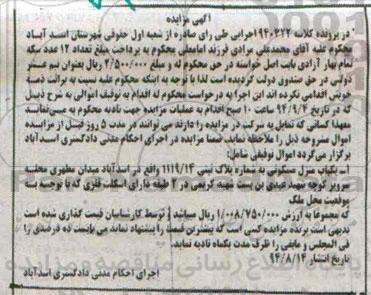 آگهی مزایده
در پرونده کلاسه ۹۴۰۳۲۲ اجرایی طی رای صادره از شعبه اول حقوقی شهرستان اسدآباد
محکوم علیه آقای محمدعلی مرادی فرزند امامعلی محکوم به پرداخت مبلغ تعداد ۱۲ عدد سکه
تمام بهار آزادی بابت اصل خواسته در حق محکوم له و مبلغ ۲/۵۰۰/۰۰۰ ریال بعنوان نیم عشر
دولتی در حق صندوق دولت گردیده است لذا با توجه به اینکه محکوم علیه نسبت به برائت ذمه
خویش اقدامی نکرده اند این اجرا به درخواست محکوم له اقدام به توقیف اموالی به شرح ذیل
که در تاریخ ۹۴/۹/۴ ساعت ۱۰ صبح اقدام به عملیات مزایده جهت تادیه محکوم به می‌نماید
معهذا کسانی که تمایل به شرکت در مزایده را دارند می توانند در مدت ۵ روز قبل از مزایده
اموال مشروحه ذیل را ملاحظه نمایند. ضمنا مزایده در اجرای احکام مدنی دادگستری اسدآباد
برگزار می گردد اموال توقیفی شامل:
۱- یکباب منزل مسکونی به شماره پلاک ثبتی ۱۱۱۹/۱۴ واقع در اسدآباد میدان مطهری محله
سرویر کوچه شهید عبدی بن بست شهید کریمی در ۲ طبقه دارای اسکلت فلزی که با توجه به
موقعیت محل ملک
که مجموعا به ارزش ۱/۰۰۸/۷۵۰/۰۰۰ ریال میباشد توسط کارشناسان قیمت گذاری شده است
بدیهی است برنده مزایده کسی است که بیشترین قیمت را پیشنهاد نماید می بایست ده درصدی را
فی المجلس و مابقی را ظرف مدت یکماه تادیه نماید.
تاریخ انتشار ۹۴/۸/۱۴
اجرای احکام مدنی دادگستری اسدآباد